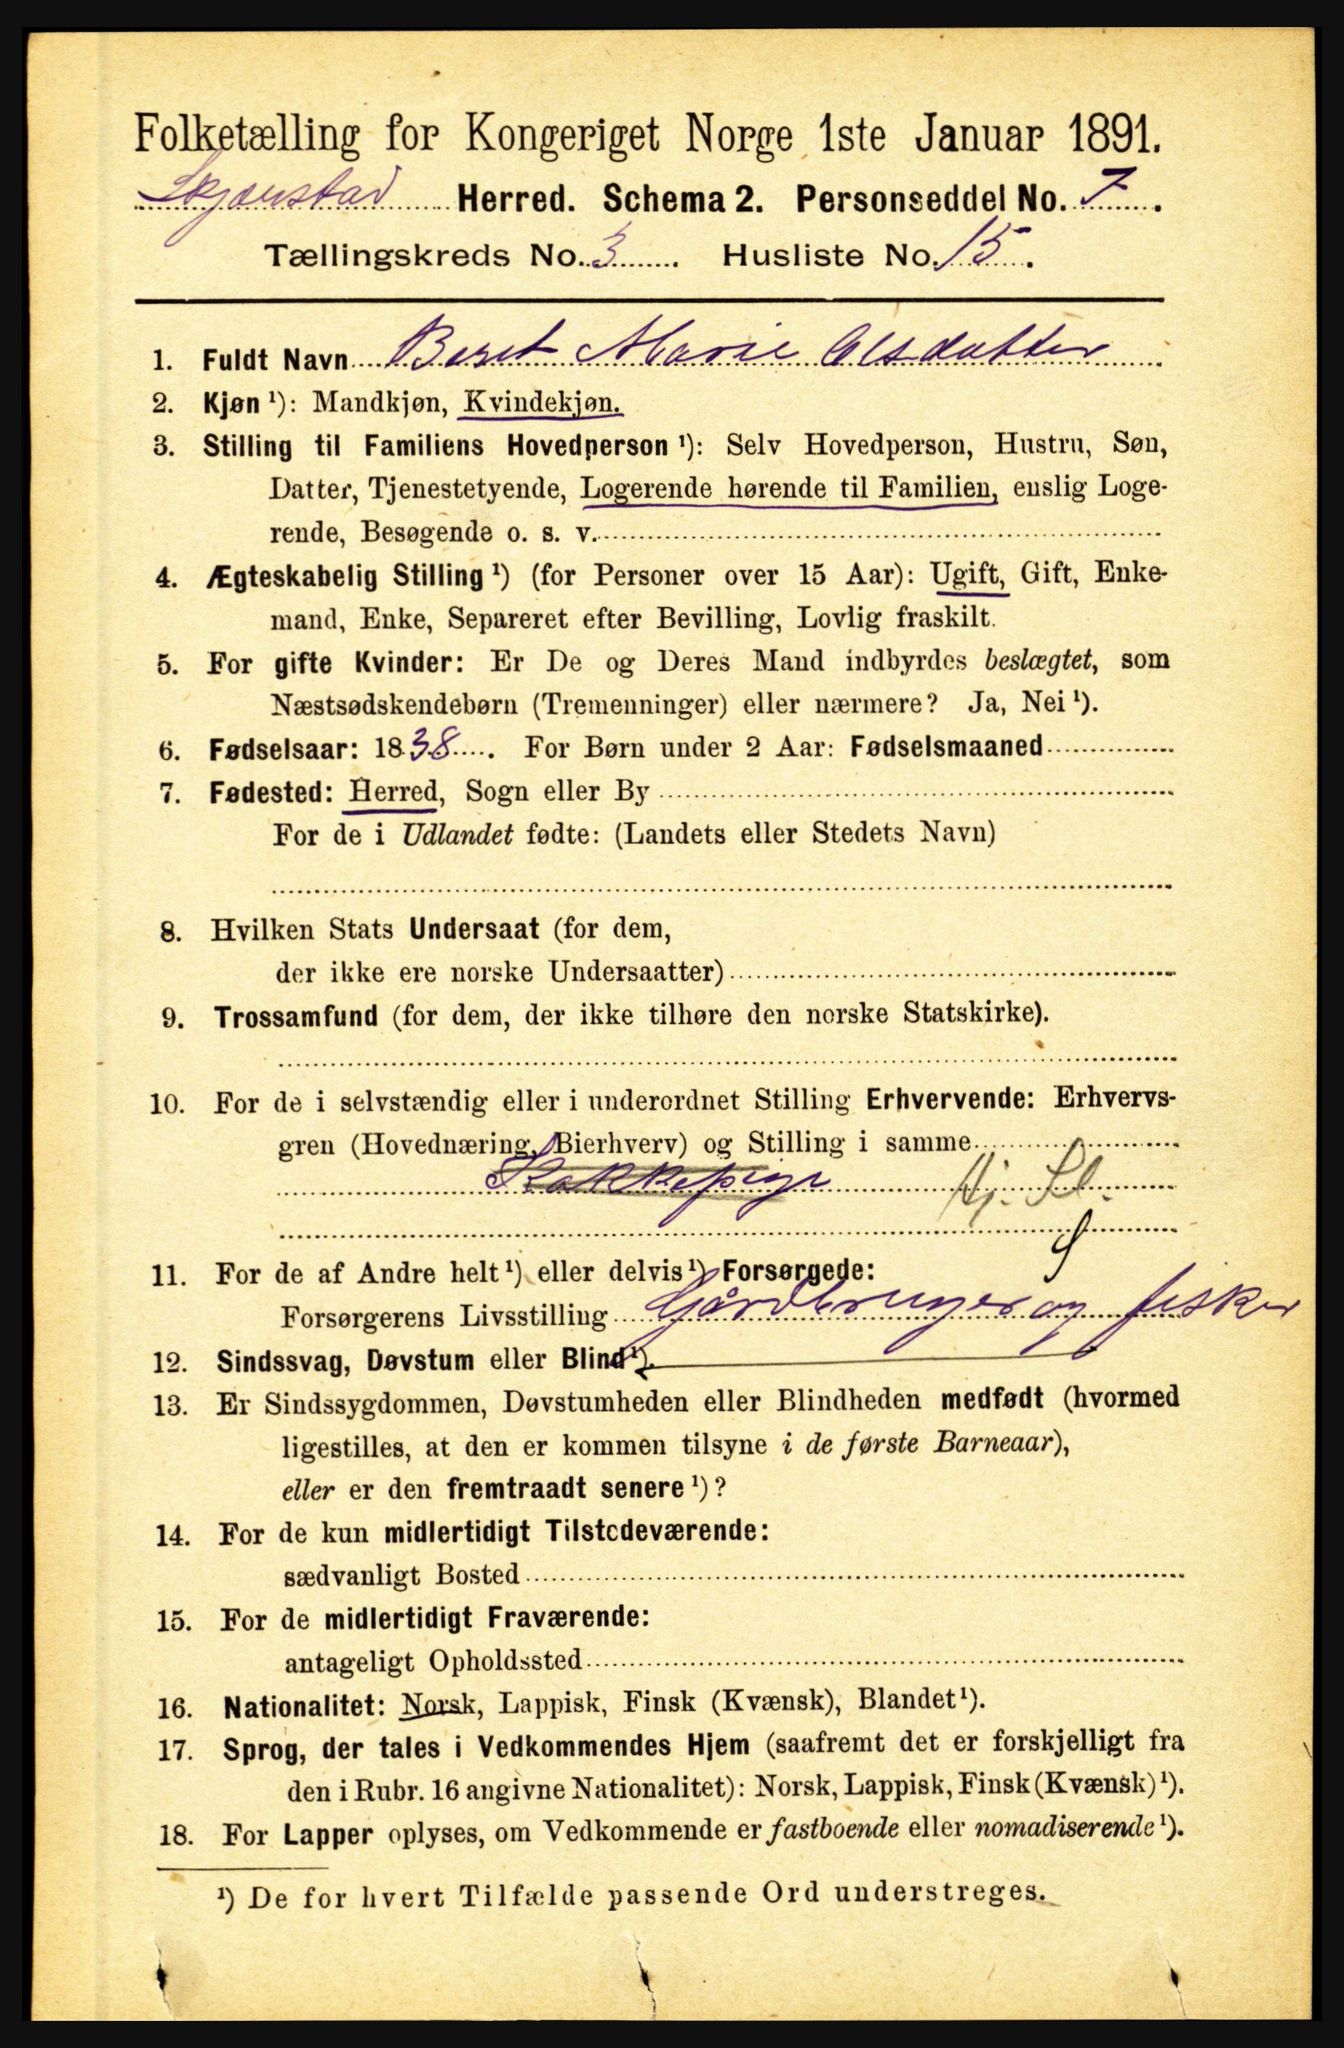 Folketælling for Kongeriget Norge 1ste Januar 1891.
Skjerstad Herred. Schema 2. Personseddel No. 7.
Tællingskreds No. 3. Husliste No. 15.
1. Fuldt Navn Beret Marie Olsdatter
2. Kjøn ¹): Mandkjøn, Kvindekjøn.
3. Stilling til Familiens Hovedperson ¹): Selv Hovedperson, Hustru, Søn,
Datter, Tjenestetyende, Logerende hørende til Familien, enslig Loge-
rende, Besøgende o. s. v.
4. Ægteskabelig Stilling ¹) (for Personer over 15 Aar): Ugift, Gift, Enke-
mand, Enke, Separeret efter Bevilling, Lovlig fraskilt.
5. For gifte Kvinder: Er De og Deres Mand indbyrdes beslægtet, som
Næstsødskendebørn (Tremenninger) eller nærmere? Ja, Nei ¹).
6. Fødselsaar: 1838. For Børn under 2 Aar: Fødselsmaaned
7. Fødested: Herred, Sogn eller By
For de i Udlandet fødte: (Landets eller Stedets Navn)
8. Hvilken Stats Undersaat (for dem,
der ikke ere norske Undersaatter)
9. Trossamfund (for dem, der ikke tilhøre den norske Statskirke).
10. For de i selvstændig eller i underordnet Stilling Erhvervende: Erhvervs-
gren (Hovednæring, Bierhverv) og Stilling i samme
Kokkepige Hj. Sl.
11. For de af Andre helt ¹) eller delvis ¹) Forsørgede:
Forsørgerens Livsstilling Gårdbruger og fisker
12. Sindssvag, Døvstum eller Blind ¹).
13. Er Sindssygdommen, Døvstumheden eller Blindheden medfødt (hvormed
ligestilles, at den er kommen tilsyne i de første Barneaar),
eller er den fremtraadt senere ¹)?
14. For de kun midlertidigt Tilstedeværende:
sædvanligt Bosted
15. For de midlertidigt Fraværende:
antageligt Opholdssted
16. Nationalitet: Norsk, Lappisk, Finsk (Kvænsk), Blandet ¹).
17. Sprog, der tales i Vedkommendes Hjem (saafremt det er forskjelligt fra
den i Rubr. 16 angivne Nationalitet): Norsk, Lappisk, Finsk (Kvænsk) ¹).
18. For Lapper oplyses, om Vedkommende er fastboende eller nomadiserende ¹).
¹) De for hvert Tilfælde passende Ord understreges.